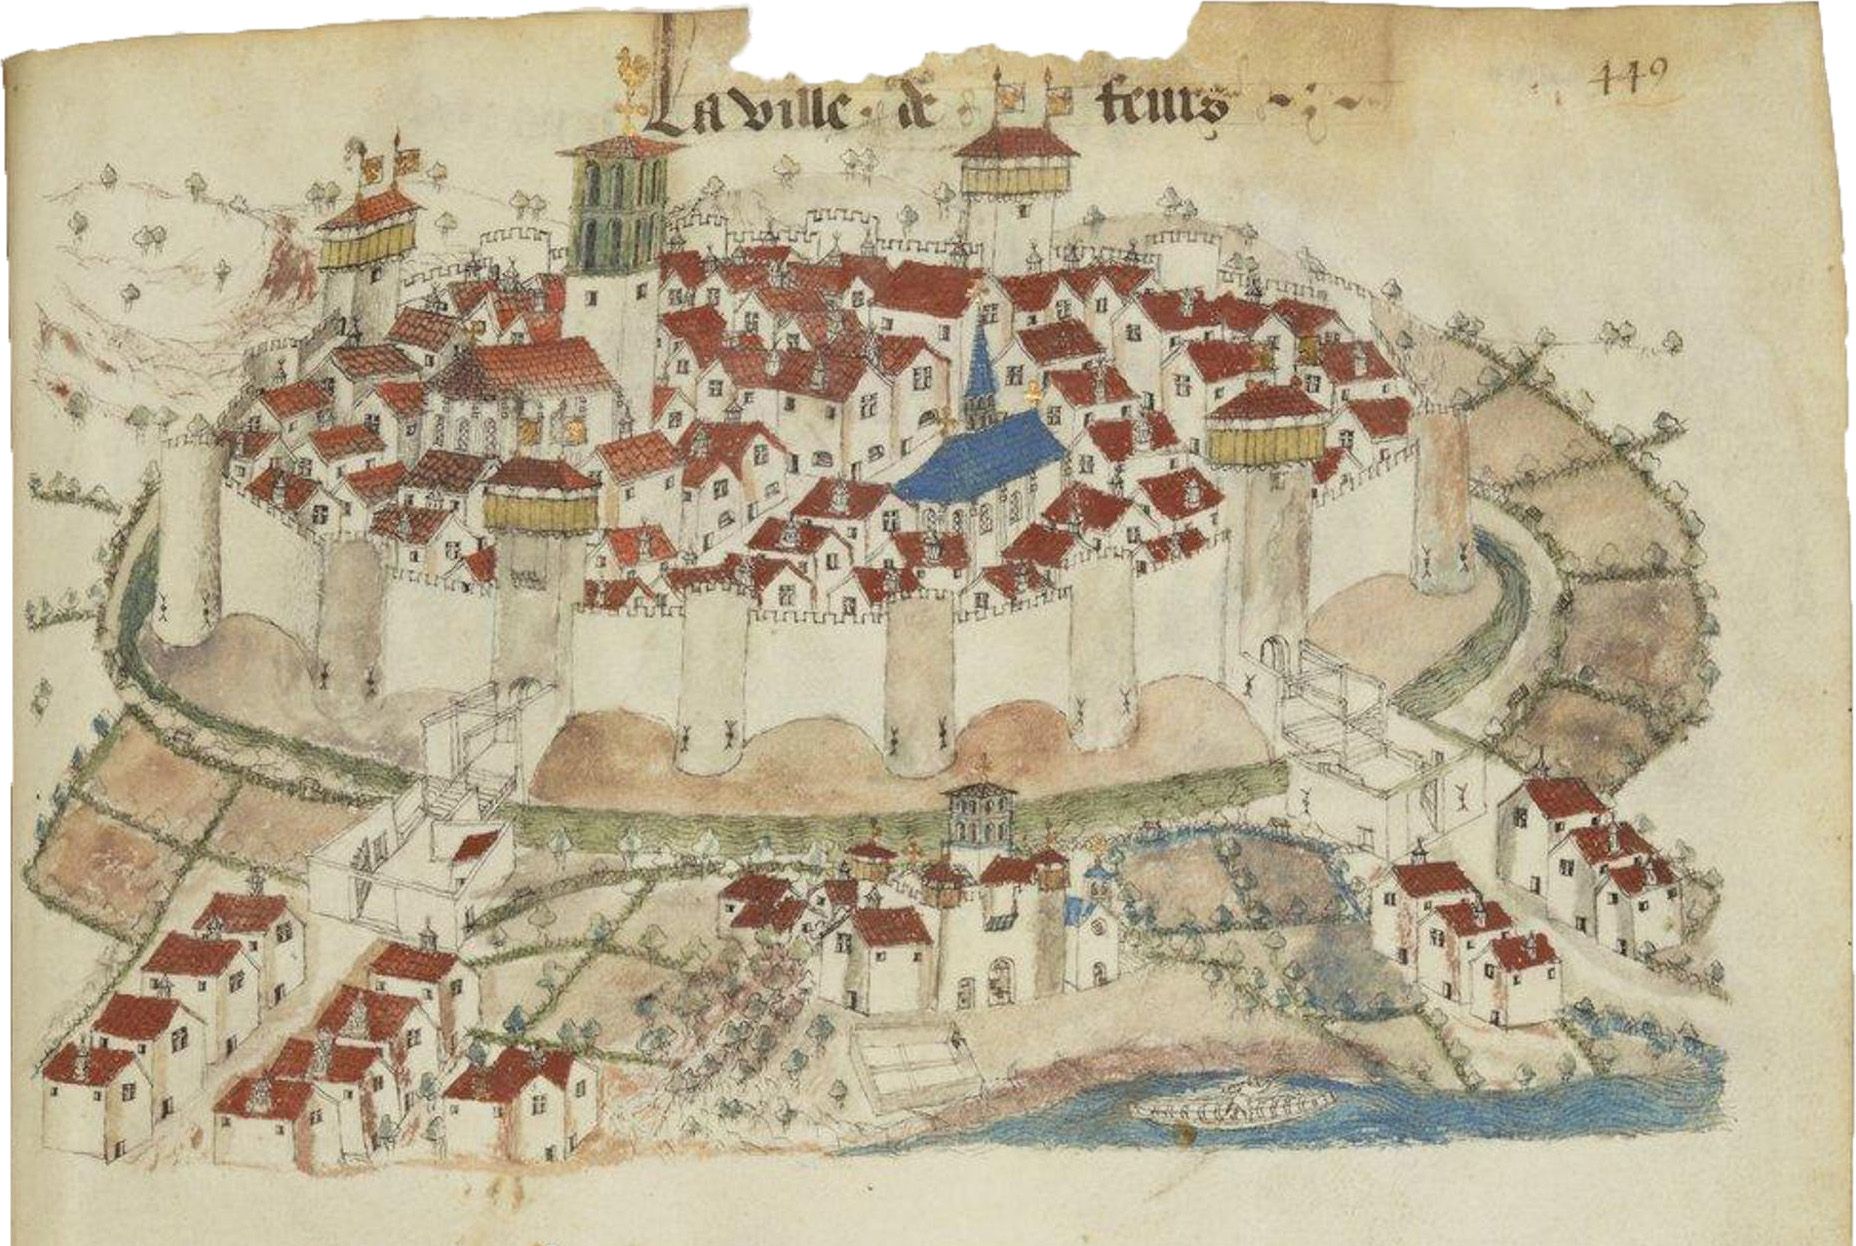 La ville · de feurs
449